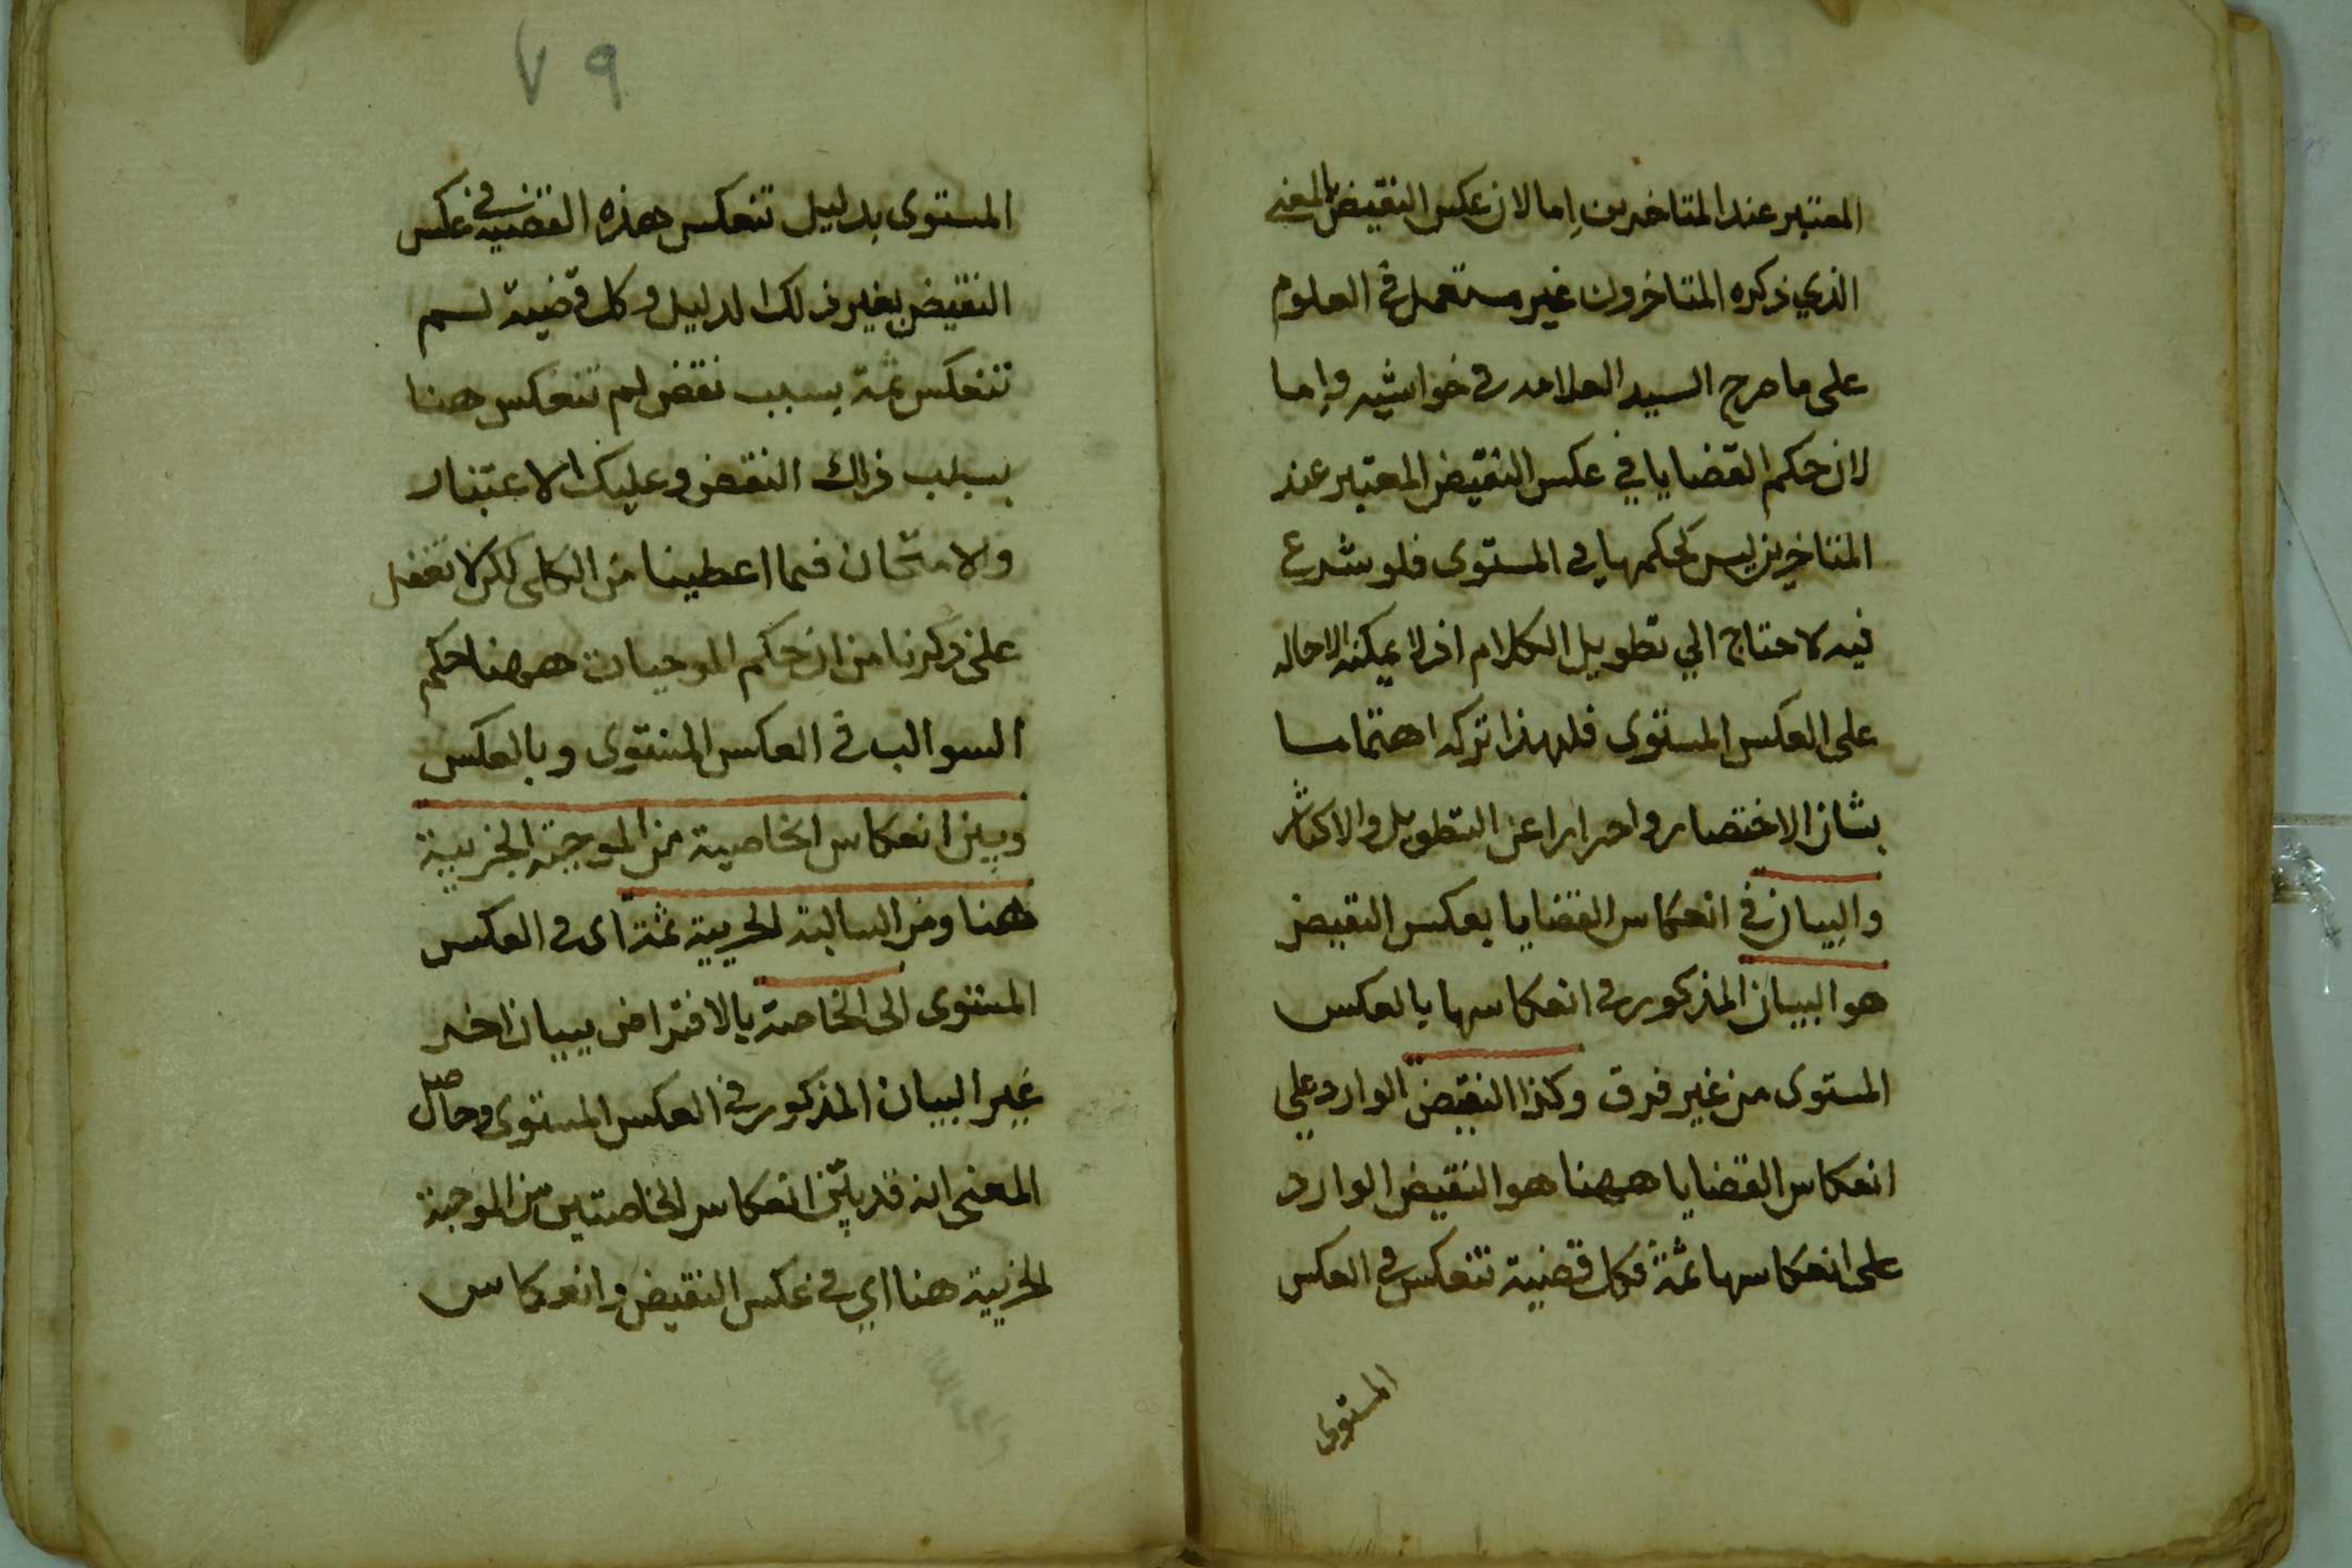 المعتبر عند المتاخرين اما لان عكس النقيض بالمعنى
الذي ذكره المتاخرون غير مستعمل في العلوم
على ما صرح السيد العلامه في حواشيه واما
لان حكم القضايا في عكس النقيض المعتبر عند
المتاخرين ليس كحكمها في المستوى فلو شرع
فيه لاحتاج الي تطويل الكلام اذ لا يمكنه الاحاله
على العكس المستوى فلهذا تركه اهتماما
بشان الاختصار واحترازا عن التطويل والاكثار
والبيان في انعكاس القضايا بعكس النقيض
هو البيان المذكور في انعكاسها بالعكس
المستوى من غير فرق وكذا النقيض الوارد علي
انعكاس القضايا ههنا هو النقيض الوارد
على انعكاسها ثمة فكل قضية تنعكس في العكس
المستوى
٧٩
المستوى بدليل تنعكس هذه القضية في عكس
النقيض بغير ذلك الدليل وكل قضية لم
تنعكس ثمة بسبب نقض لم تنعكس هنا
بسبب ذلك النقض وعليك الاعتبار
والامتحان فيما اعطينا من الكلى لكن لا تغفل
على ذكرنا من ان حكم الموجبات ههنا حكم
السوالب في العكس المستوى وبالعكس
وبين انعكاس الخاصية من الموجبة الجزيية
هنا ومن السالبة الجزيية ثمة اى في العكس
المستوى الى الخاصة بالافتراض ببيان اخر
غير البيان المذكور في العكس المستوى وحاصل
المعنى انه قد بين انعكاس الخاصتين من الموجبة
الجزيية هنا اي في عكس النقيض وانعكاس